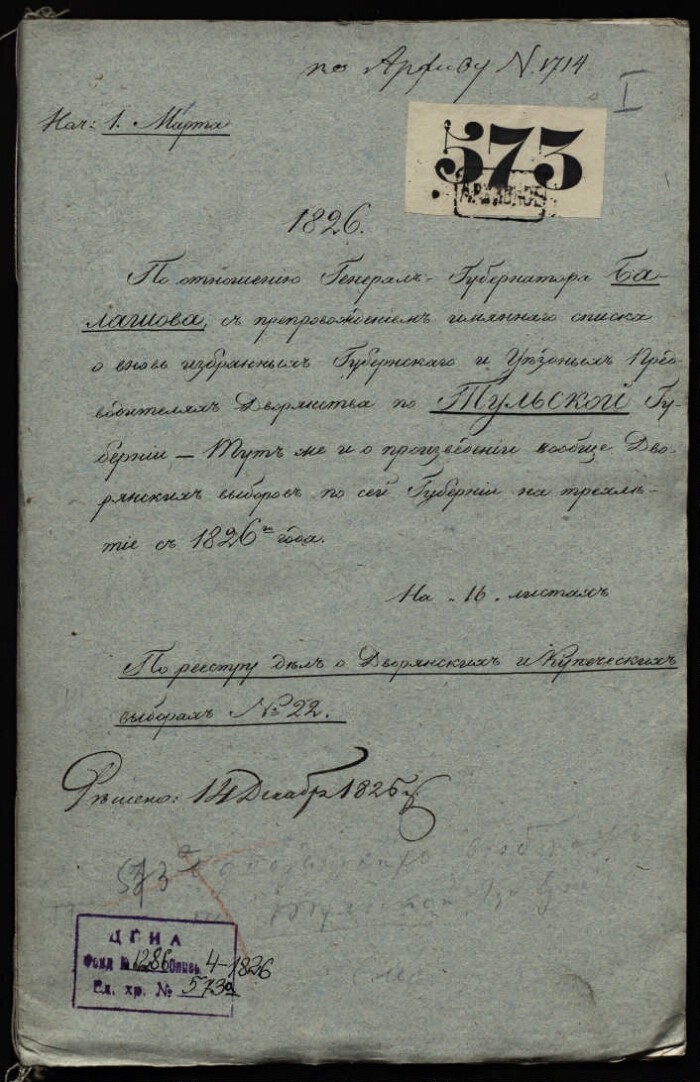 по Архиву N. 1714
I
Нач: 1. Марта
573
АРХИВНОЕ
1826.
По отношению Генералъ-Губернатора Ба-
лашова, съ препровожденіемъ имяннаго списка
о вновь избранныхъ Губернскаго и Уѣздныхъ Пред-
водителяхъ Дворянства по Тульской Гу-
берніи — Тутъ же и о произведеніи вообще Дво-
рянскихъ выборовъ по сей Губерніи на трехлѣ-
тіе съ 1826го года.
На 16. листахъ
По реестру дѣлъ о Дворянскихъ и Купеческихъ
выборахъ № 22.
Рѣшено: 14 Декабр 1826
573а
ЦГИА
Фонд № 1286 Опись 4-1826
Ед. хр. № 573а